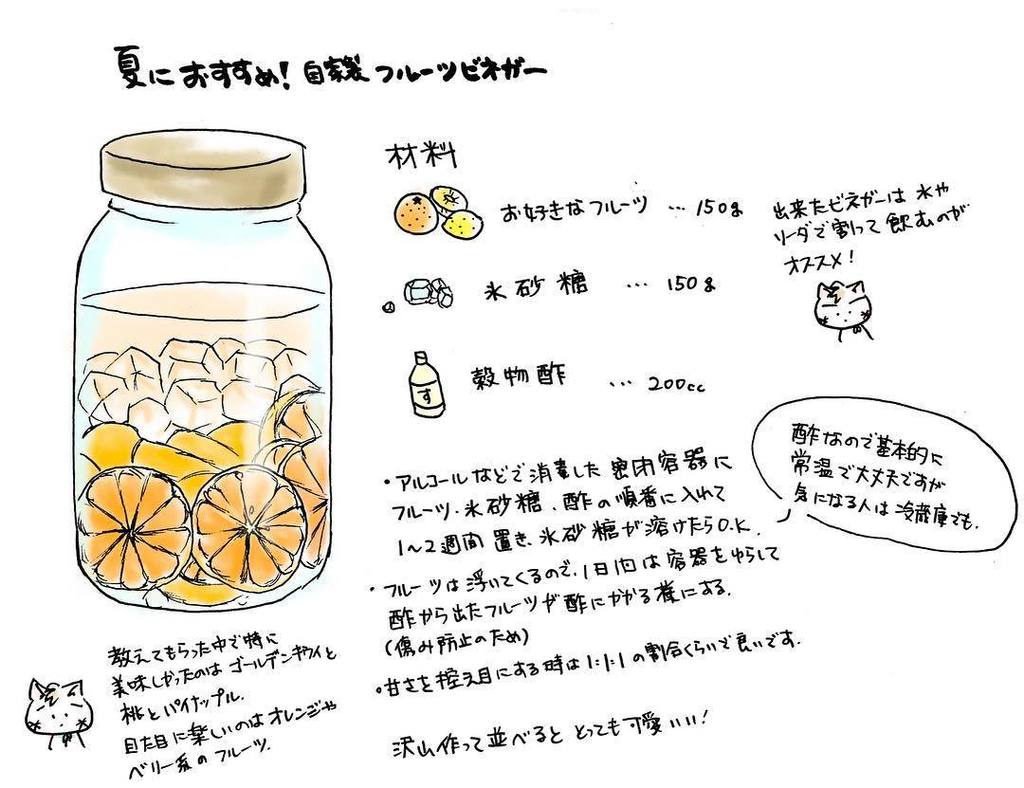 夏におすすめ!自家製フルーツビネガー
材料
お好きなフルーツ … 150g
氷砂糖 … 150g
す
穀物酢 … 200cc
出来たビネガーは水や
ソーダで割って飲むのが
オススメ!
・アルコールなどで消毒した密閉容器に
フルーツ、氷砂糖、酢の順番に入れて
1〜2週間置き、氷砂糖が溶けたらO.K.
酢なので基本的に
常温で大丈夫ですが
気になる人は冷蔵庫でも。
・フルーツは浮いてくるので、1日1回は容器をゆらして
酢から出たフルーツが酢にかかる様にする。
(傷み防止のため)
・甘さを控え目にする時は1:1:1の割合くらいで良いです。
沢山作って並べるととっても可愛いい!
教えてもらった中で特に
美味しかったのはゴールデンキウイと
桃とパイナップル。
見た目に楽しいのはオレンジや
ベリー系のフルーツ。